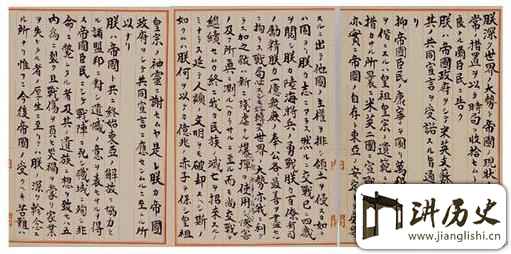 朕深ク世界ノ大勢ト帝國ノ現狀ト
常ノ措置ヲ以テ時局ヲ收拾セム
良ナル爾臣民ニ告ク
朕ハ帝國政府ヲシテ米英支蘇
共ノ共同宣言ヲ受諾スル旨通
抑帝國臣民ノ康寧ヲ圖リ萬
偕ニスルハ皇祖皇宗ノ遺範
措カサル所曩ニ米英二國ニ宣
亦實ニ帝國ノ自存ト東亞ノ安定
スルニ出テ他國ノ主權ヲ排シ領土ヲ侵スカ如
ハ固ヨリ朕カ志ニアラス然ルニ交戰已ニ四歳
ヲ閲シ朕カ陸海將兵ノ勇戰朕カ百僚有司
ノ勵精朕カ一億衆庶ノ奉公各最善ヲ盡セ
拘ラス戰局必スシモ好轉セス世界ノ大勢亦我ニ利
加之敵ハ新ニ殘虐ナル爆彈ヲ使用シ
及フ所眞ニ測ルヘカラサルニ至ル而モ尚交戰ヲ
繼續セムカ終ニ我カ民族ノ滅亡ヲ招來スル
ノミナラス延テ人類ノ文明ヲモ破却スヘシ斯
如クムハ朕何ヲ以テカ億兆ノ赤子ヲ保シ皇祖
皇宗ノ神靈ニ謝セムヤ是レ朕カ帝國
政府ヲシテ共同宣言ニ應セシムルニ至レル所
以ナリ
朕ハ帝國ト共ニ終始東亞ノ解放ニ協力セ
ル諸盟邦ニ對シ遺憾ノ意ヲ表セサルヲ得
ス帝國臣民ニシテ戰陣ニ死シ職域ニ殉シ非
命ニ斃レタル者及其ノ遺族ニ想ヲ致セハ五
内爲ニ裂ク且戰傷ヲ負ヒ災禍ヲ蒙リ家業
ヲ失ヒタル者ノ厚生ニ至リテハ朕ノ深ク軫念ス
ル所ナリ惟フニ今後帝國ノ受クヘキ苦難ハ
讲历史
www.jianglishi.cn